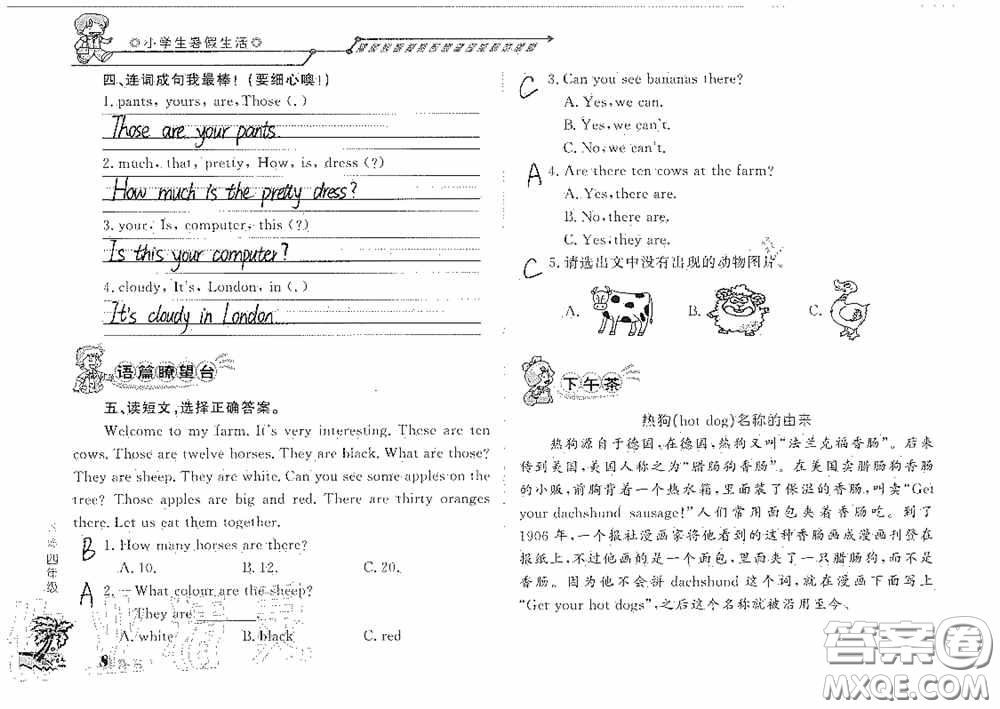 ✩小学生暑假生活✩
四、连词成句我最棒！(要细心噢！)
1. pants, yours, are, Those (.)
Those are your pants.
2. much, that, pretty, How, is, dress (?)
How much is the pretty dress?
3. your, Is, computer, this (?)
Is this your computer?
4. cloudy, It's, London, in (.)
It's cloudy in London
语篇瞭望台
五、读短文,选择正确答案。
Welcome to my farm. It's very interesting. These are ten
cows. Those are twelve horses. They are black. What are those?
They are sheep. They are white. Can you see some apples on the
tree? Those apples are big and red. There are thirty oranges
there. Let us eat them together.
B 1. How many horses are there?
A. 10. B. 12. C. 20.
A 2. – What colour are the sheep?
They are ______.
A. white B. black C. red
四年级
8
C 3. Can you see bananas there?
A. Yes, we can.
B. Yes, we can't.
C. No, we can't.
A 4. Are there ten cows at the farm?
A. Yes, there are.
B. No, there are.
C. Yes, they are.
C 5. 请选出文中没有出现的动物图片。
A. B. C.
下午茶
热狗(hot dog)名称的由来
热狗源自于德国,在德国,热狗又叫“法兰克福香肠”。后来
传到美国,美国人称之为“腊肠狗香肠”。在美国卖腊肠狗香肠
的小贩,前胸背着一个热水箱,里面装了保温的香肠,叫卖“Get
your dachshund sausage!”人们常用面包夹着香肠吃。到了
1906 年,一个报社漫画家将他看到的这种香肠画成漫画刊登在
报纸上,不过他画的是一个面包,里面夹了一只腊肠狗,而不是
香肠。因为他不会拼 dachshund 这个词,就在漫画下面写上
“Get your hot dogs”,之后这个名称就被沿用至今。
答案卷
MXQE.COM